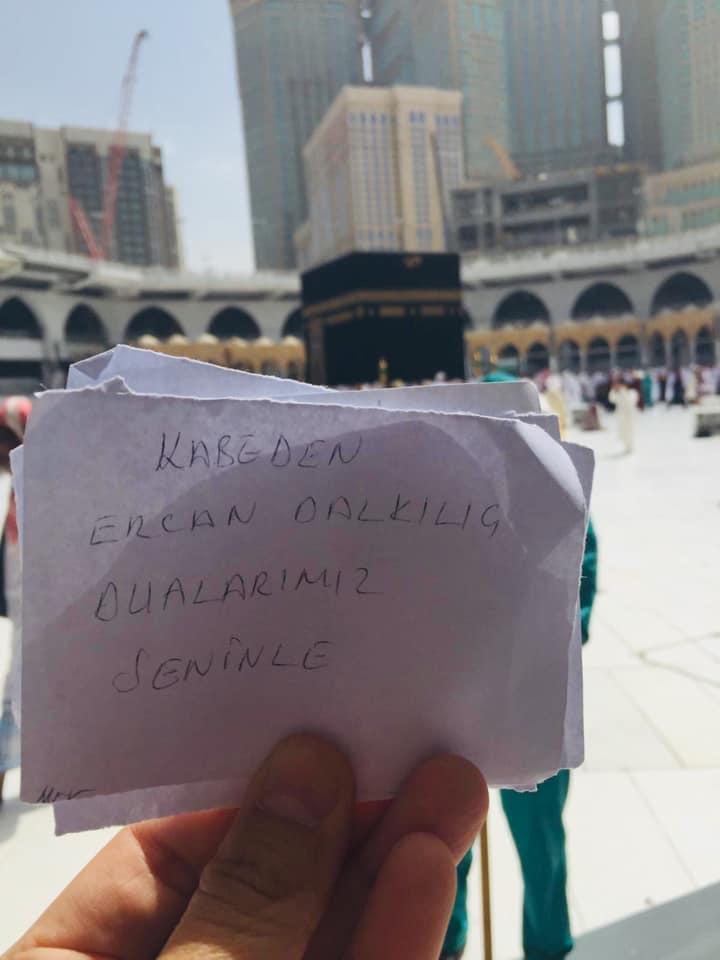 KABEDEN
ERCAN DALKILIÇ
DUALARIMIZ
SENİNLE